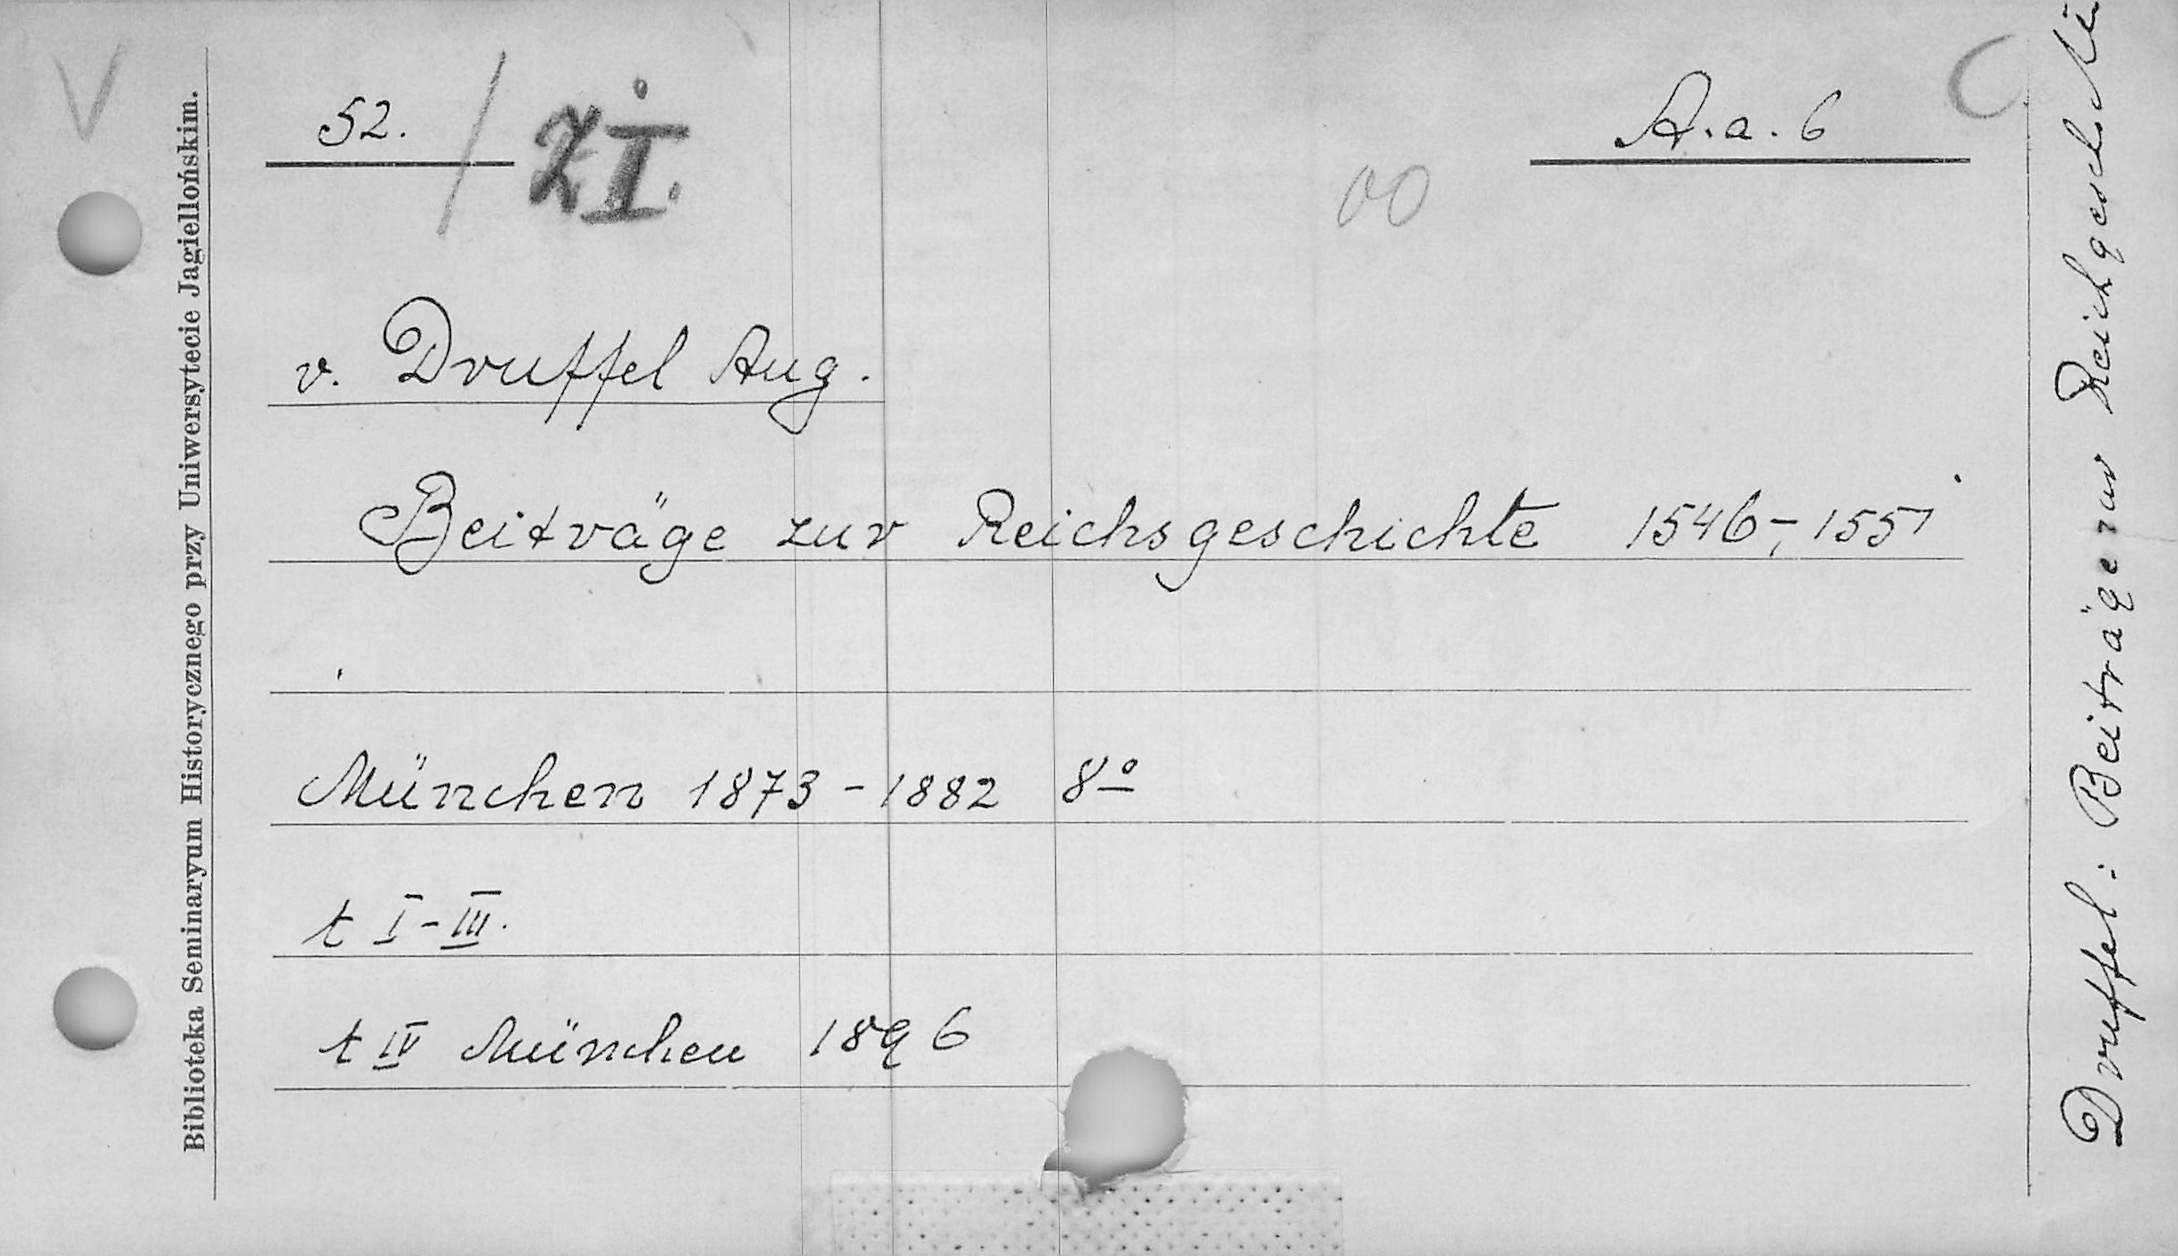 V
Biblioteka Seminaryum Historycznego przy Uniwersytecie Jagiellońskim.
52. / ZI. A.a.6 C
00
v. Druffel Aug.
Beiträge zur Reichsgeschichte 1546-, 1551
München 1873-1882 8º
t I-III.
t IV München 1896
Druffel: Beiträge zur